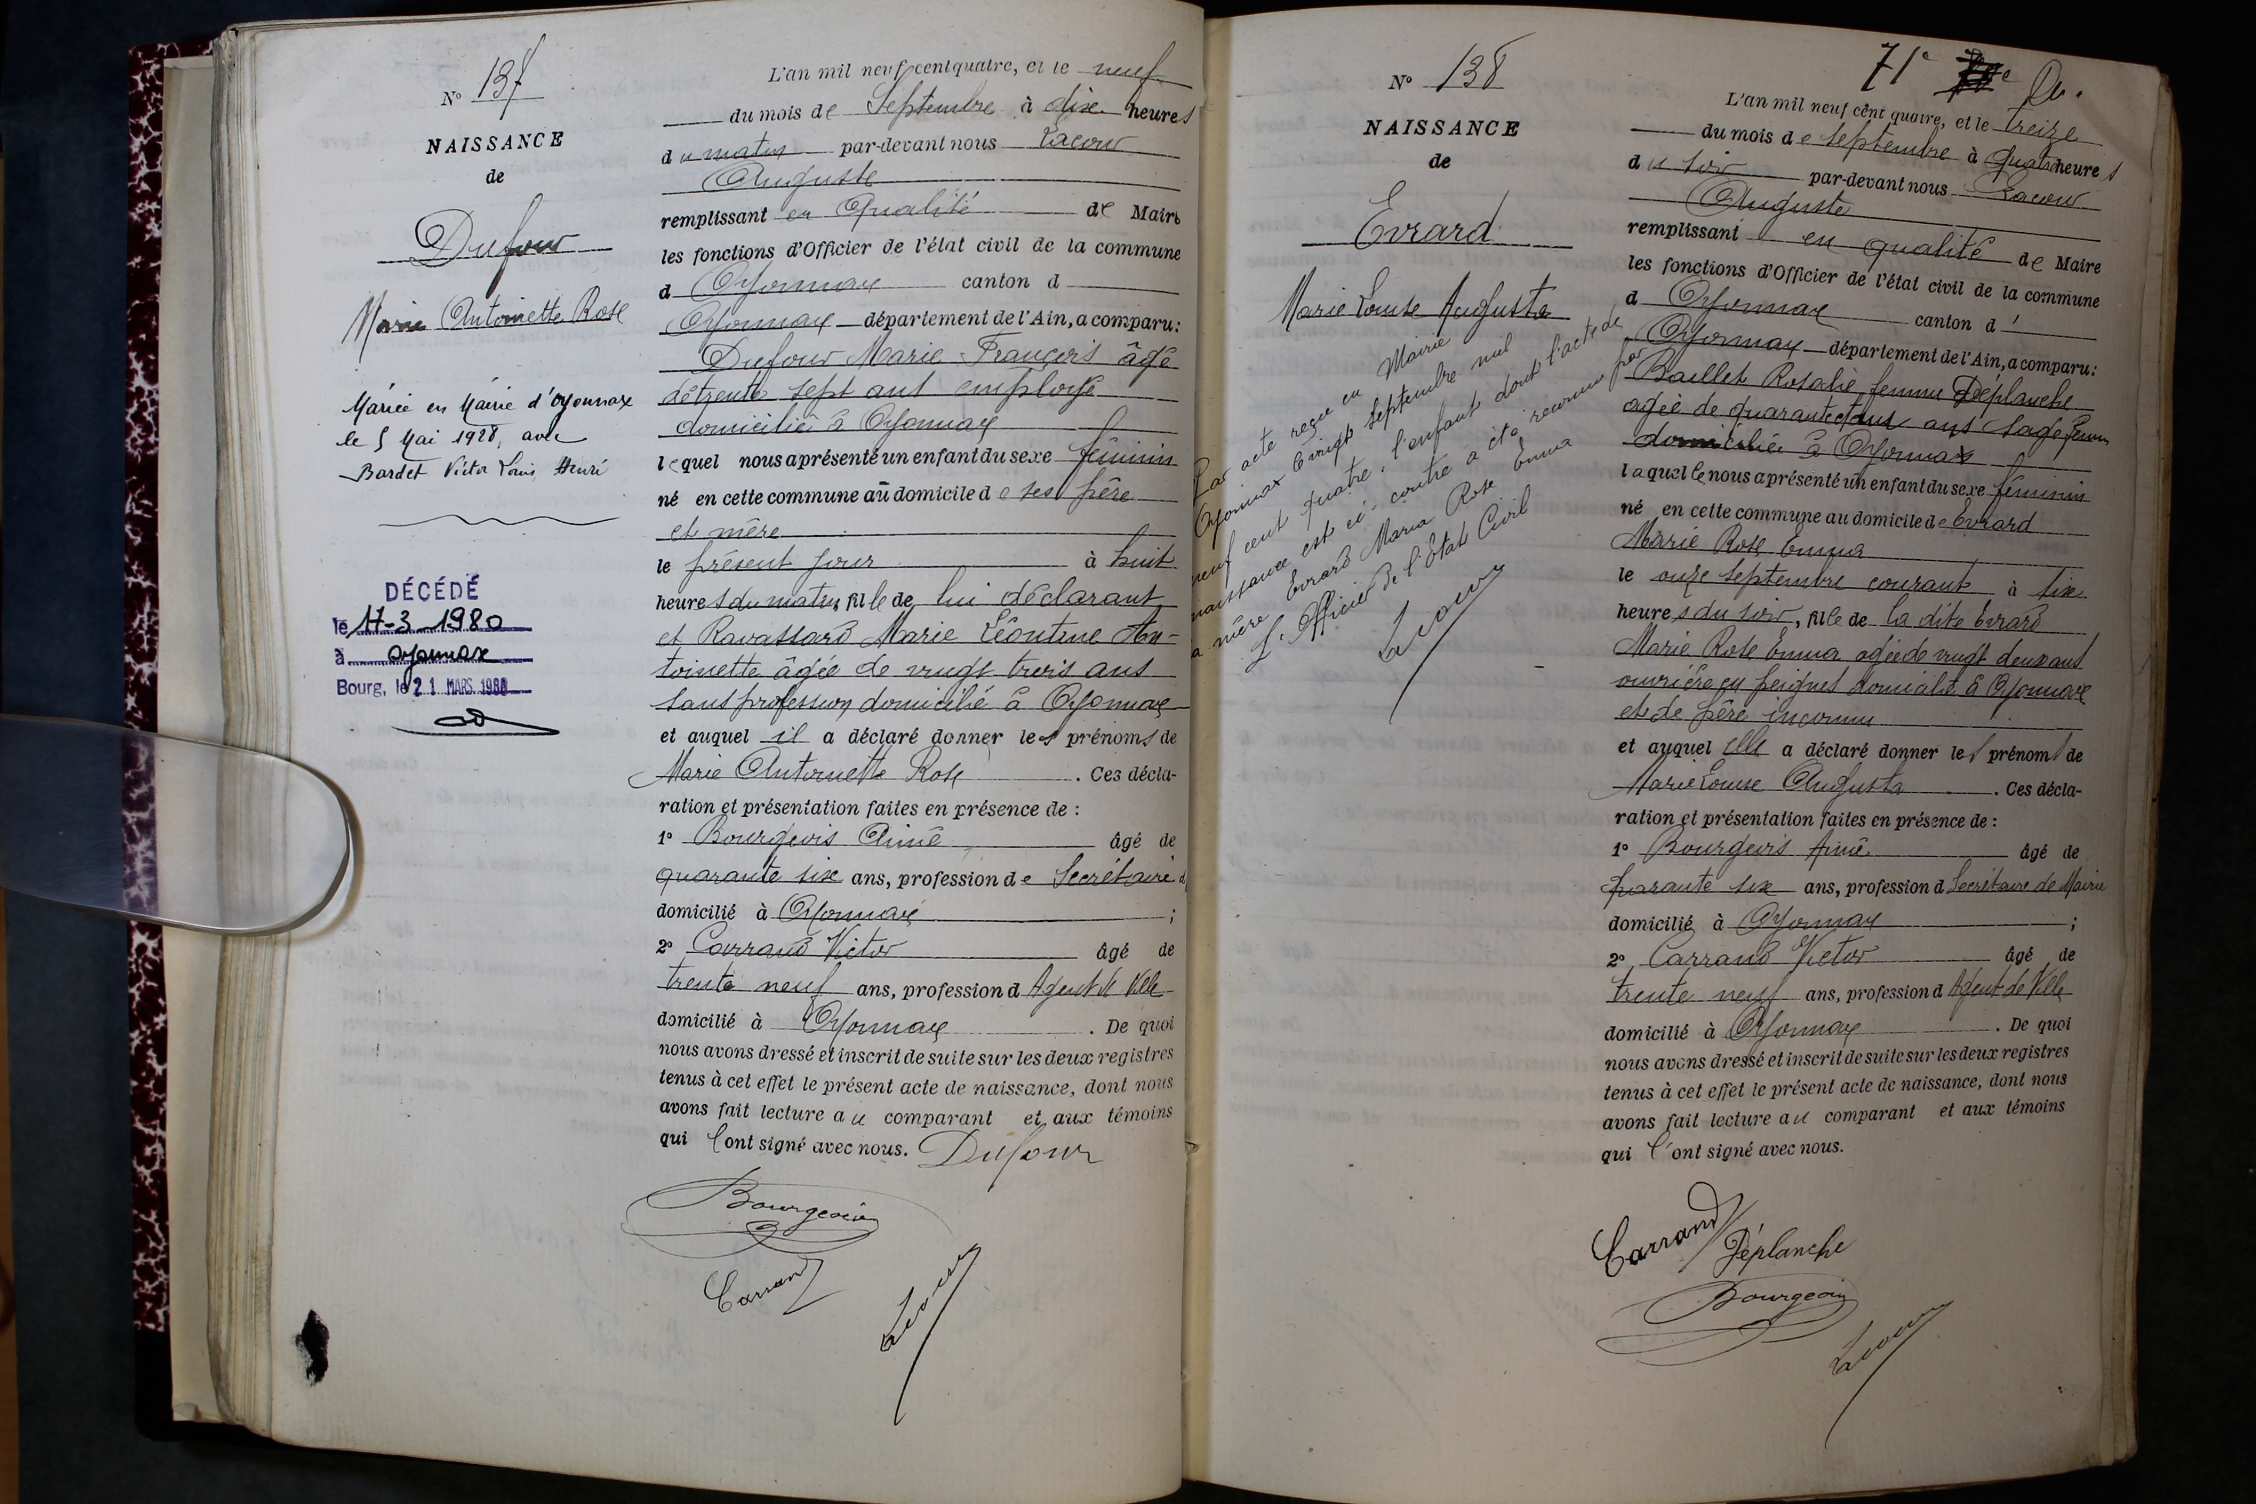 N° 137
NAISSANCE
de
Dufour
Marie Antoinette Rose
Mariée en Mairie d'Oyonnax
le 5 Mai 1928, avec
Bardet Victor Louis Henri
DÉCÉDÉ
le 17-3-1980
à Oyonnax
Bourg, le 21 MARS 1980
L'an mil neuf cent quatre, et le neuf
du mois de Septembre à dix heures
du matin par-devant nous Lacour
Auguste
remplissant en qualité de Maire
les fonctions d'Officier de l'état civil de la commune
d Oyonnax canton d
Oyonnax département de l'Ain, a comparu:
Dufour Marie François âgé
de trente sept ans employé
domicilié à Oyonnax
lequel nous a présenté un enfant du sexe féminin
né en cette commune au domicile de ses père
et mère
le présent jour à huit
heures du matin, fille de lui déclarant
et Ravassard Marie Léontine An-
toinette âgée de vingt trois ans
sans profession domicilié à Oyonnax
et auquel il a déclaré donner les prénoms de
Marie Antoinette Rose. Ces décla-
ration et présentation faites en présence de :
1° Bourgeois Aimé âgé de
quarante six ans, profession de Secrétaire d
domicilié à Oyonnax ;
2° Carrand Victor âgé de
trente neuf ans, profession d Agent de Ville
domicilié à Oyonnax. De quoi
nous avons dressé et inscrit de suite sur les deux registres
tenus à cet effet le présent acte de naissance, dont nous
avons fait lecture au comparant et aux témoins
qui l'ont signé avec nous. Dufour
Bourgeois
Carrand
Lacour
71e
N° 138
NAISSANCE
de
Evrard
Marie Louise Augusta
Par acte reçu en Mairie
Oyonnax vingt septembre mil
neuf cent quatre, l'enfant dont l'acte de
naissance est ci-contre a été reconnu par
a mère Evrard Maria Rose Emma
L'Officier de l'Etat Civil
Lacour
L'an mil neuf cent quatre, et le treize
du mois de septembre à quatre heures
du soir par-devant nous Lacour
Auguste
remplissant en qualité de Maire
les fonctions d'Officier de l'état civil de la commune
d Oyonnax canton d'
Oyonnax département de l'Ain, a comparu:
Baillet Rosalie femme Déplanche
agée de quarante ans Sage femme
domiciliée à Oyonnax
laquelle nous a présenté un enfant du sexe féminin
né en cette commune au domicile de Evrard
Marie Rose Emma
le onze septembre courant à six
heures du soir, fille de la dite Evrard
Marie Rose Emma agée de vingt deux ans
ouvrière en peignes domicilié à Oyonnax
et de père inconnu
et auquel elle a déclaré donner les prénoms de
Marie Louise Augusta. Ces décla-
ration et présentation faites en présence de :
1° Bourgeois Aimé âgé de
quarante six ans, profession d Secrétaire de Mairie
domicilié à Oyonnax ;
2° Carrand Victor âgé de
trente neuf ans, profession d Agent de Ville
domicilié à Oyonnax. De quoi
nous avons dressé et inscrit de suite sur les deux registres
tenus à cet effet le présent acte de naissance, dont nous
avons fait lecture au comparant et aux témoins
qui l'ont signé avec nous.
Carrand Déplanche
Bourgeois
Lacour